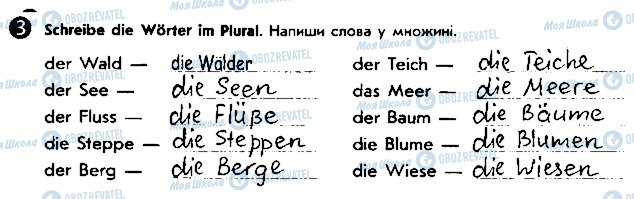 3 Schreibe die Wörter im Plural. Напиши слова у множині.
der Wald — die Wälder
der See — die Seen
der Fluss — die Flüße
die Steppe — die Steppen
der Berg — die Berge
der Teich — die Teiche
das Meer — die Meere
der Baum — die Bäume
die Blume — die Blumen
die Wiese — die Wiesen